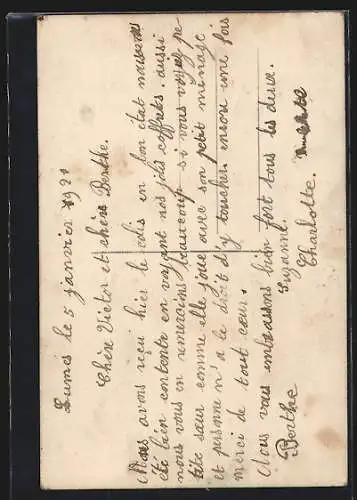 Lumes le 5 janvier 1921
Chère Victor et chère Berthe.
Nous avons reçu hier le colis en bon état nous avons
été bien contente en voyant nos jolis coffrets. aussi
nous vous en remercions beaucoup. si vous voyez pe-
tite sœur comme elle joue avec son petit ménage
et personne n'a le droit d'y toucher. encore une fois
merci de tout cœur.
Nous vous embrassons bien fort tous les deux.
Suzanne.
Berthe
Charlotte.